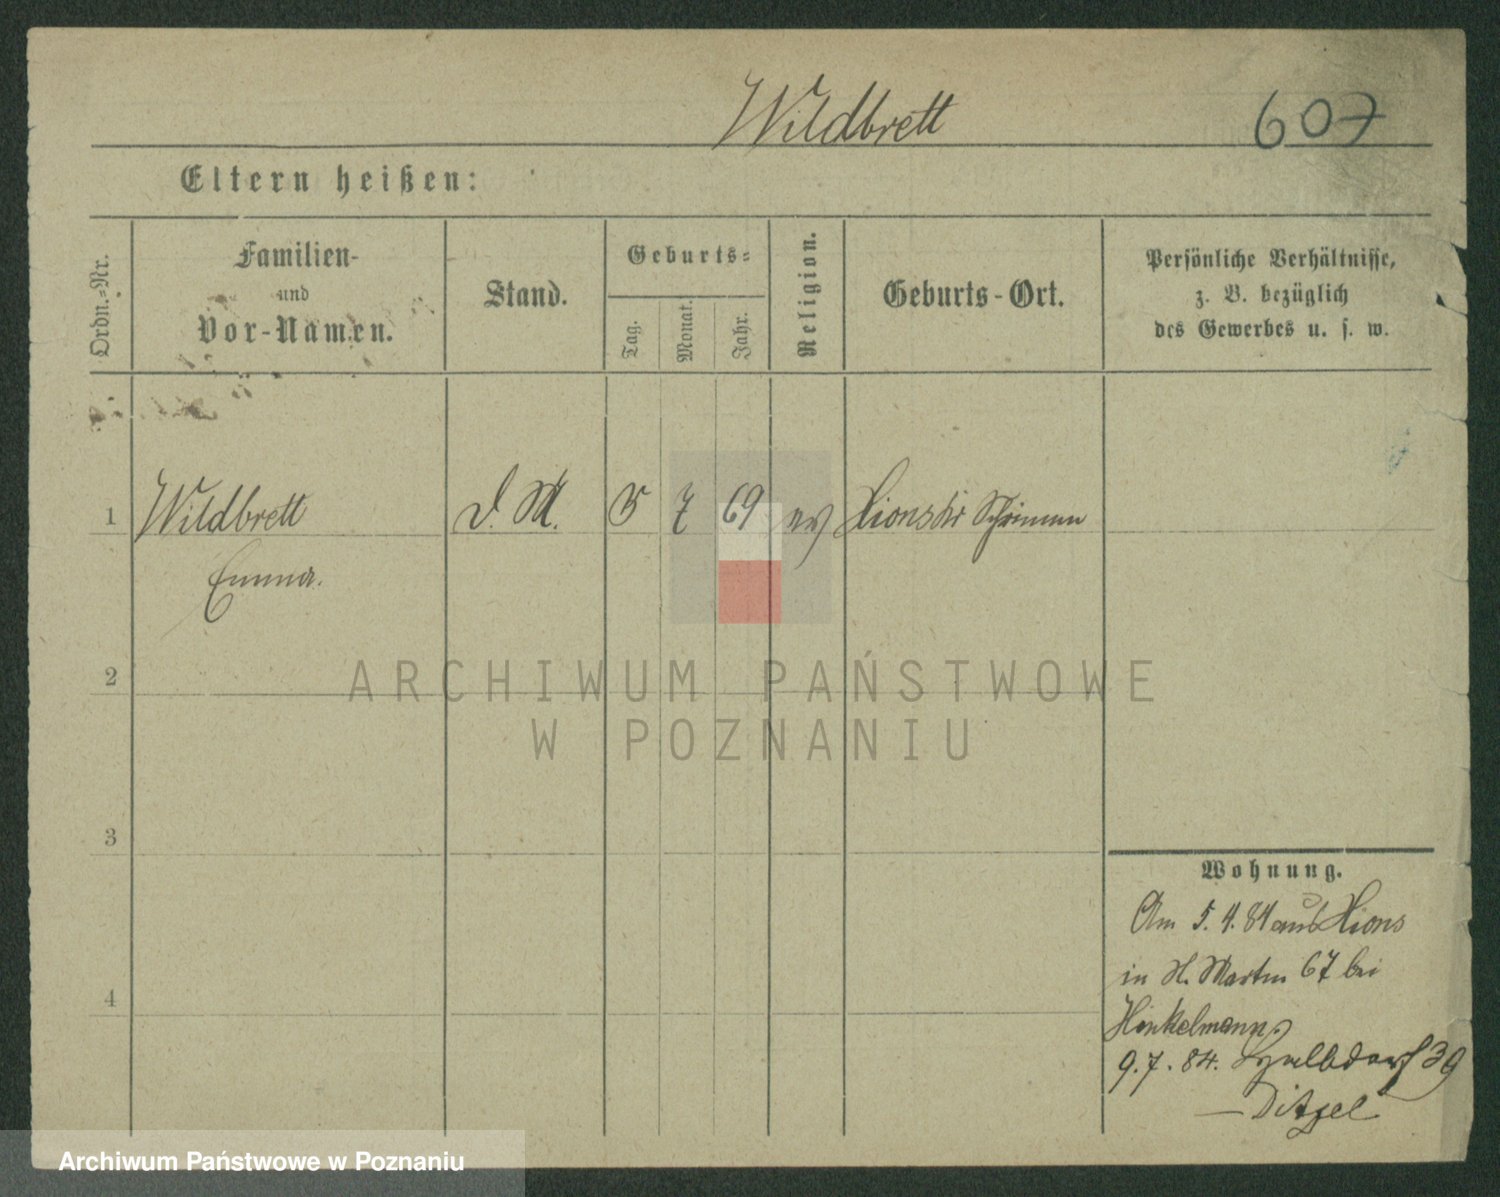 Wildbrett 607
Eltern heißen:
Ordn.-Nr.
Familien-
und
Vor-Namen.
Stand.
Geburts-
Tag.
Monat.
Jahr.
Religion.
Geburts-Ort.
Persönliche Verhältnisse,
z. B. bezüglich
des Gewerbes u. s. w.
1 Wildbrett D. M. 5 7 69 ev Xions Kr Schrimm
Emma.
2
3
4
Wohnung.
Am 5. 4. 84 aus Xions
in St. Martin 67 bei
Hinkelmann
9. 7. 84. 39
Ditzel
ARCHIWUM PAŃSTWOWE
W POZNANIU
Archiwum Państwowe w Poznaniu